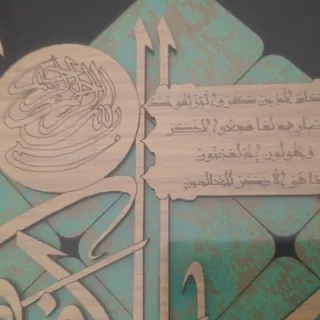 بسم الله الرحمن الرحيم
يكاد الذين كفروا ليزلقونك
بصارهم لما سمعوا الذكر
و يقولون إنه لمجنون
ما هو إلا ذكر للعالمين